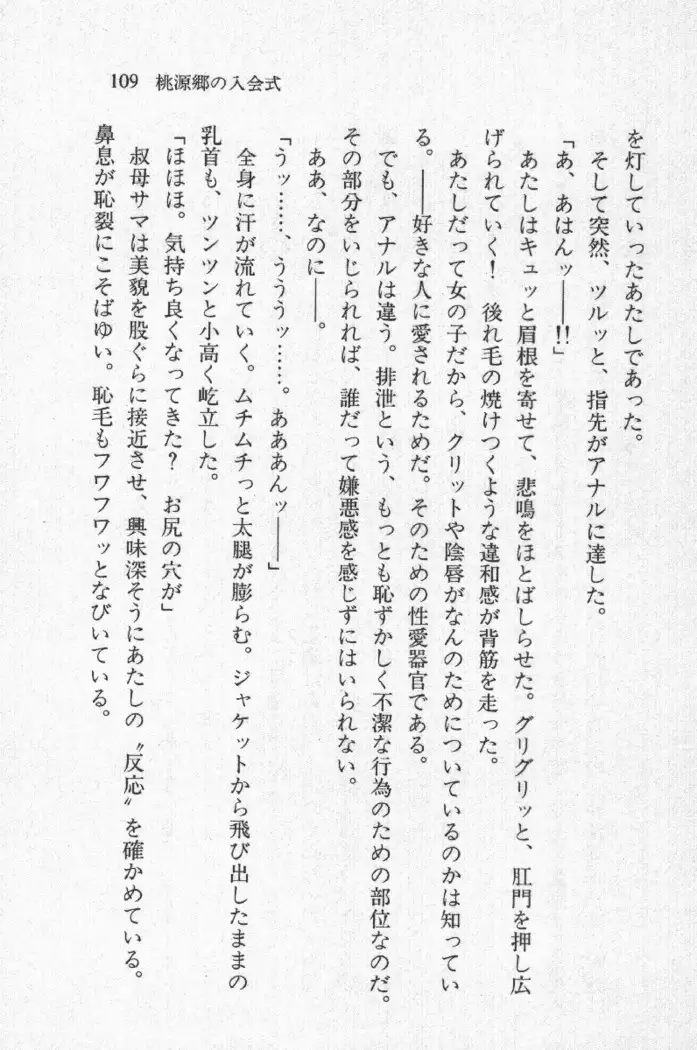 109 桃源郷の入会式
を灯していったあたしであった。
そして突然、ツルッと、指先がアナルに達した。
「あ、あはんッ――!!」
あたしはキュッと眉根を寄せて、悲鳴をほとばしらせた。グリグリッと、肛門を押し広
げられていく! 後れ毛の焼けつくような違和感が背筋を走った。
あたしだって女の子だから、クリットや陰唇がなんのためについているのかは知ってい
る。――好きな人に愛されるためだ。そのための性愛器官である。
でも、アナルは違う。排泄という、もっとも恥ずかしく不潔な行為のための部位なのだ。
その部分をいじられれば、誰だって嫌悪感を感じずにはいられない。
ああ、なのに――。
「うッ……、うううッ……。あああんッ――」
全身に汗が流れていく。ムチムチっと太腿が膨らむ。ジャケットから飛び出したままの
乳首も、ツンツンと小高く屹立した。
「ほほほ。気持ち良くなってきた? お尻の穴が」
叔母サマは美貌を股ぐらに接近させ、興味深そうにあたしの〝反応〟を確かめている。
鼻息が恥裂にこそばゆい。恥毛もフワフワッとなびいている。